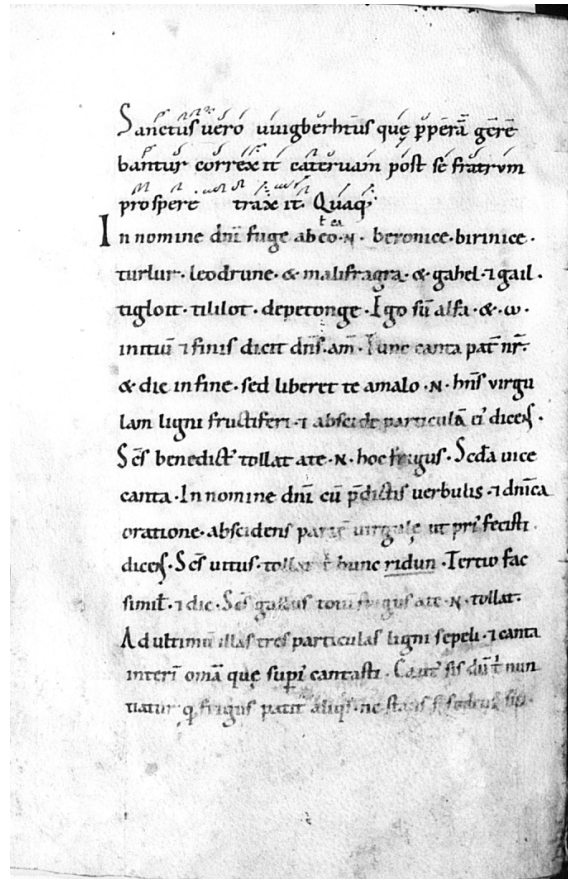 Sanctus uero uuigberhtus quę p̄perā gere
bantur correxit cateruam post se fratrum
prospere traxit. Quaq;
ł ea
In nomine dn̄i fuge ab eo .N. beronice. birinice.
turlur. leodrune. & malifragra. & gahel. ⁊ gail.
tigloit. tililot. depetonge. Ego sū alfa. &. ω.
initiū ⁊ finis dicit dn̄s. am̄. Tunc canta pat̄ nr̄.
& dic in fine. sed liberet te amalo .N. hn̄s virgu
lam ligni fructiferi. ⁊ abscide particulā ei' dicens.
Sc̄s benedict' tollat a te .N. hoc frigus. Scd̄a uice
canta. In nomine dn̄i cū p̄dictis uerbulis. ⁊ dn̄ica
oratione. abscidens partē virgulę ut pri' fecisti
dicens. Sc̄s uitus. tollat t̄ hunc ridun. Tertio fac
simil̄. ⁊ dic. Sc̄s gallus tom frigus a te .N. tollat.
Ad ultimū illas tres particulas ligni sepeli. ⁊ canta
interī om̄a quę supi' cantasti. Caut' sis dū t̄ nun
tiatur q frigus patit' aliqs. ne stans